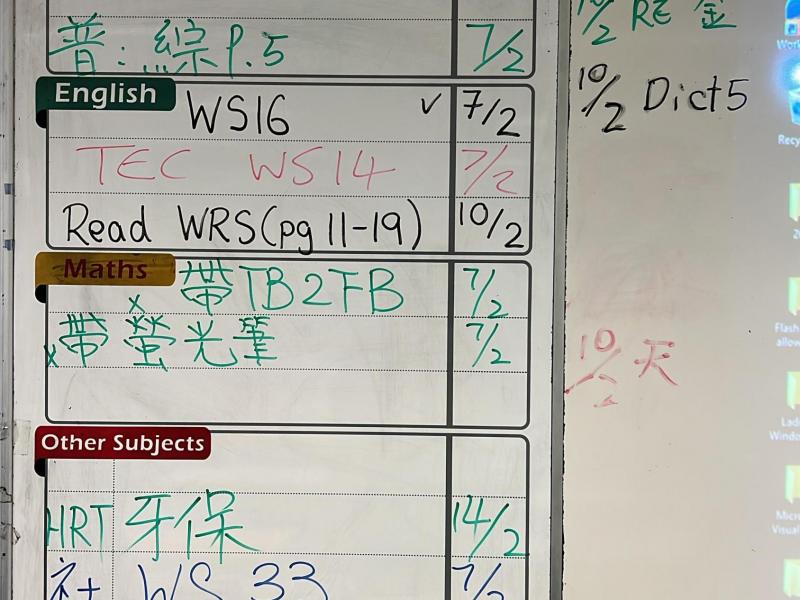 普:綜P.5 7/2
English
WS16 ✓ 7/2
TEC WS14 7/2
Read WRS(pg 11-19) 10/2
Maths
x 帶TB2FB 7/2
x帶螢光筆 7/2
Other Subjects
HRT 牙保 14/2
WS 33 7/2
10/2 RE 金
10/2 Dict5
10/2 天